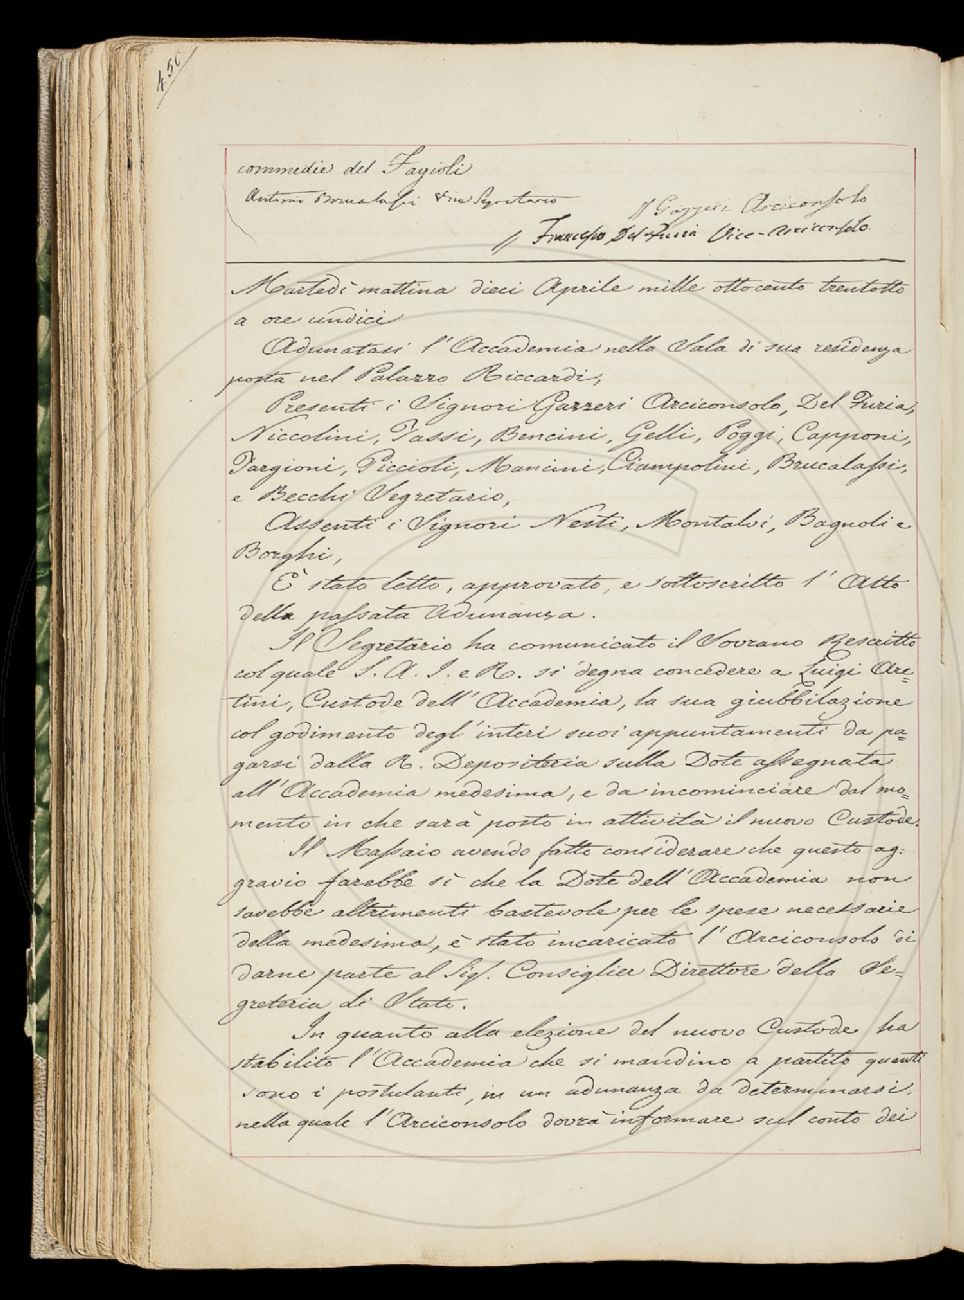 456
commedie del Fagioli
Antonio Brucalassi Vice Segretario
// Gazzeri Arciconsolo
// Francesco Del Furia Vice-Arciconsolo
Martedì mattina dieci Aprile mille ottocento trentotto
a ore undici
Adunatasi l'Accademia nella Sala di sua residenza
posta nel Palazzo Riccardi,
Presenti i Signori Gazzeri Arciconsolo, Del Furia,
Niccolini, Tassi, Bencini, Gelli, Poggi, Capponi,
Targioni, Piccioli, Mancini, Ciampolini, Brucalassi,
e Becchi Segretario,
Assenti i Signori Nesti, Montalvi, Bagnoli e
Borghi,
È stato letto, approvato, e sottoscritto l'Atto
della passata Adunanza.
Il Segretario ha comunicato il Sovrano Rescritto
col quale S. A. I. e R. si degna concedere a Luigi Ar=
tini, Custode dell'Accademia, la sua giubbilazione
col godimento degl'interi suoi appuntamenti da pa=
garsi dalla R. Depositeria sulla Dote assegnata
all'Accademia medesima, e da incominciare dal mo=
mento in che sarà posto in attività il nuovo Custode.
Il Massaio avendo fatto considerare che questo ag=
gravio farebbe sì che la Dote dell'Accademia non
sarebbe altrimenti bastevole per le spese necessarie
della medesima, è stato incaricato l'Arciconsolo di
darne parte al Sig. Consiglier Direttore della Se=
greteria di Stato.
In quanto alla elezione del nuovo Custode ha
stabilito l'Accademia che si mandino a partito quanti
sono i postulanti, in un adunanza da determinarsi,
nella quale l'Arciconsolo dovrà informare sul conto dei